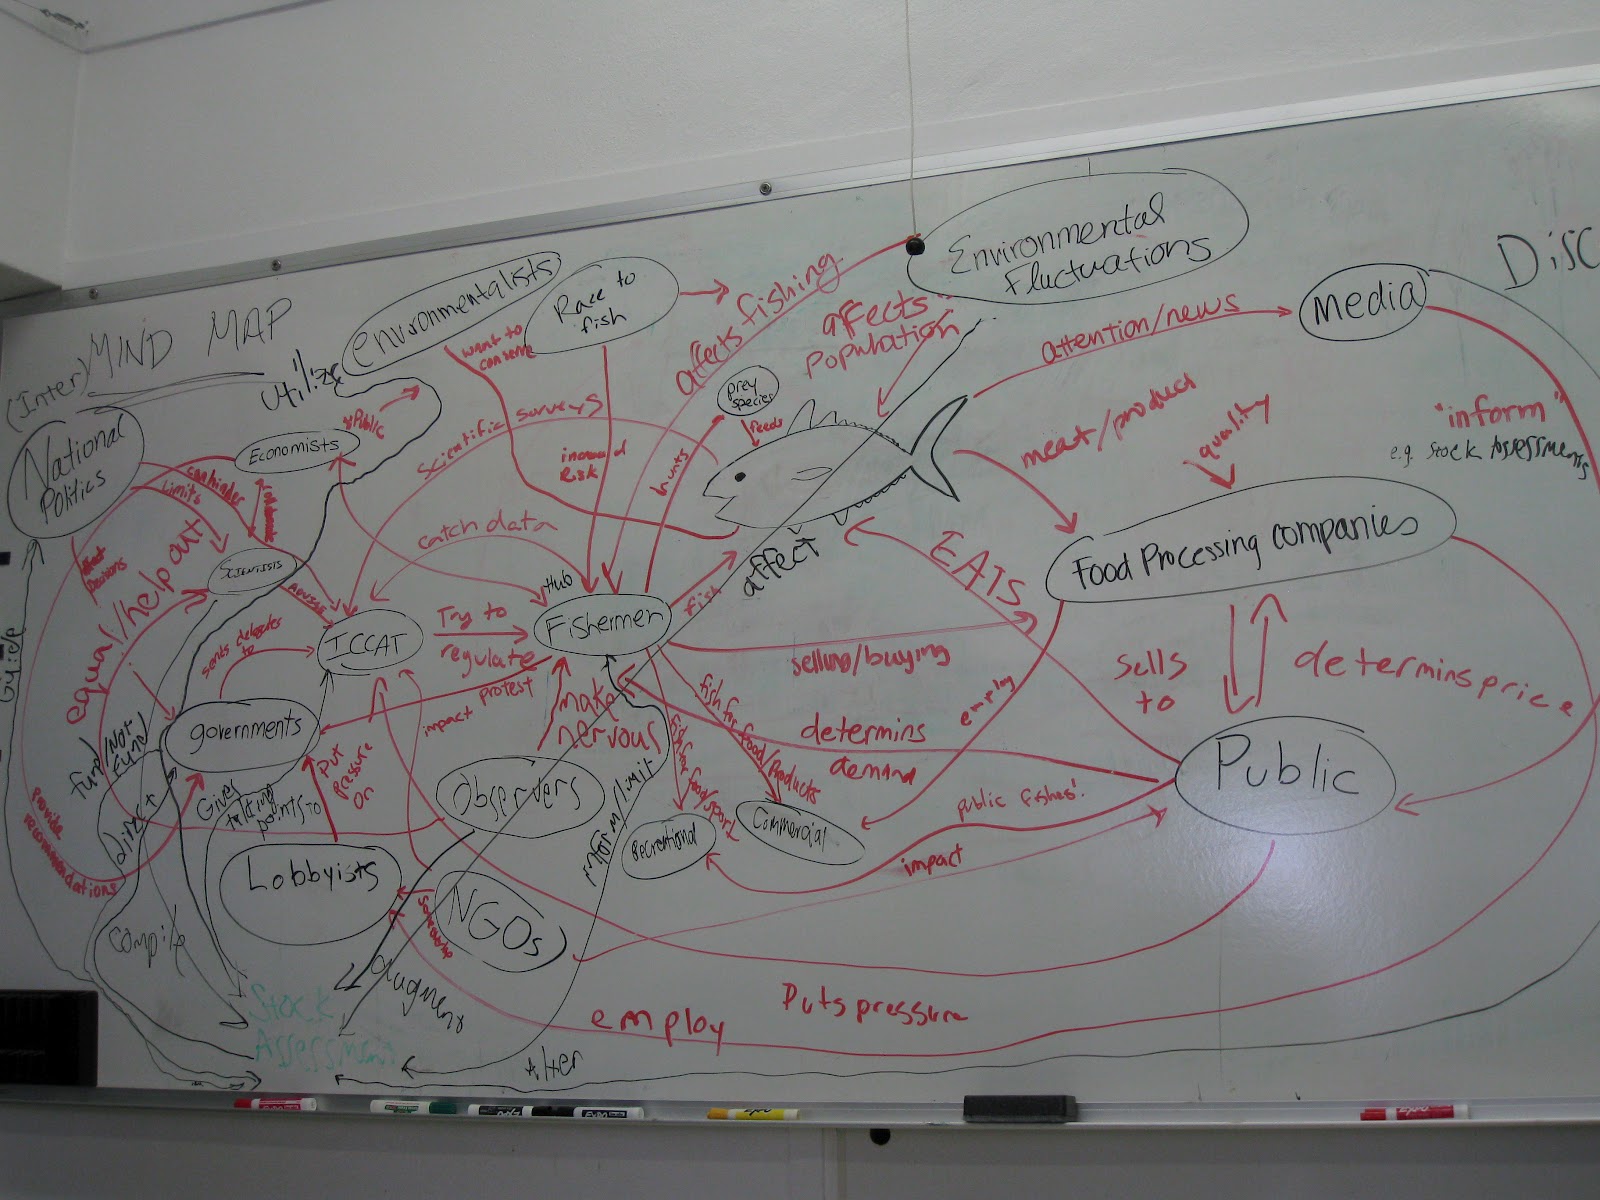 (Inter)
MIND MAP
National
Politics
utilize
environmentalists
Race to
fish
want to
conserve
affects fishing
Environmental
Fluctuations
affects
population
attention/news
Media
Disc
"inform"
e.g. Stock Assessments
Economists
Public
can hinder
Limits
Decisions
equal/help out
Scientists
Scientific surveys
increased
Risk
hunts
prey
species
feeds
meat/product
quality
Food Processing companies
catch data
Hub
Fishermen
fish
affect
EATS
ICCAT
Try to
regulate
sends delegates
to
governments
impact
protest
make
nervous
selling/buying
employ
sells
to
determins price
Public
determins
demand
fish for food/products
fish for food/sport
public fishes!
impact
Commercial
Recreational
Observers
Put
pressure
on
Fund/Not
Fund
direct
Gives
talking
points to
provide
recommendations
Lobbyists
NGOs
compile
augment
Stock
Assessment
employ
Puts pressure
Alter
EXPO